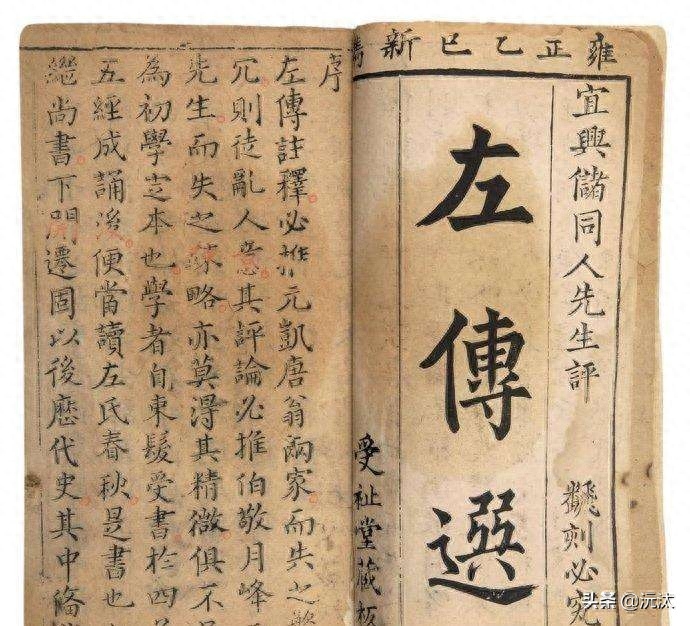 雍正乙巳新鐫
宜興儲同人先生評
飜刻必究
左傳選
受祉堂藏板
序
左傳註釋必推元凱唐翁兩家而失之
冗則徒亂人意其評論必推伯敬月峰
先生而失之疎略亦莫得其精微俱不
為初學定本也學者自束髮受書於四
五經成誦後便當讀左氏春秋是書也
繼尚書下開遷固以後歷代史其中條
头条 @沅汰